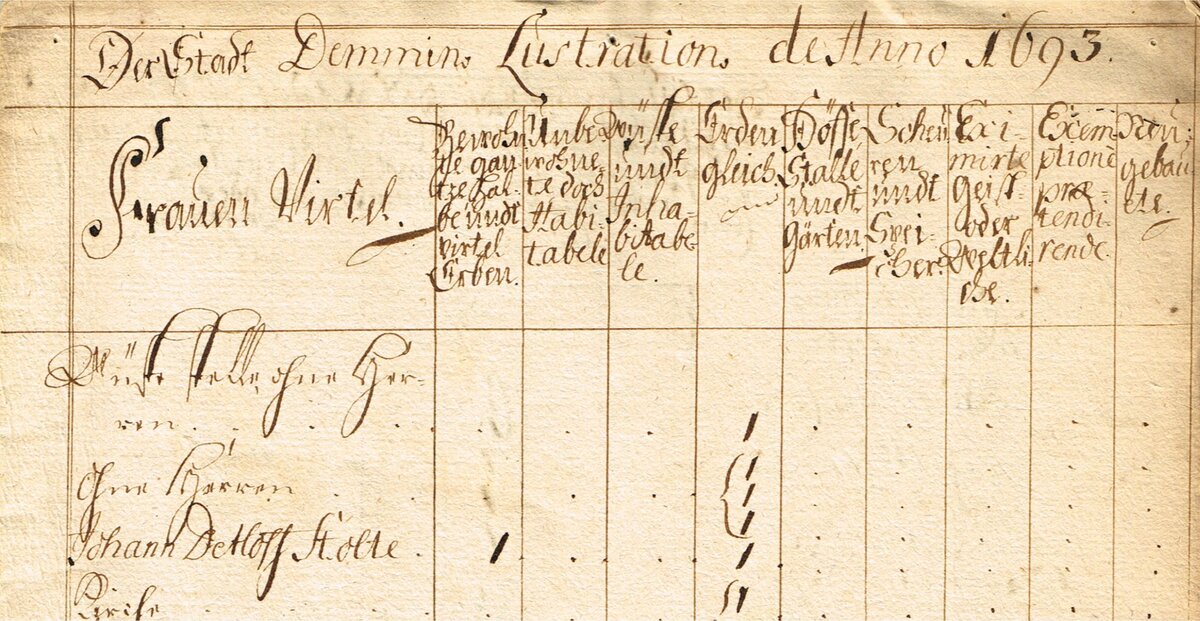 Der Stadt Demmin Lustration de Anno 1693.
Frauen Virtel.
Bewohn
te gan
tze hal-
be undt
virtel
Erben.
Unbe
wohne-
te doch
Habi-
tabele
Wüste
undt
Inha-
bitabe-
le.
Erden
gleich
Höffe
Stalle
undt
Gärten.
Scheu
ren
undt
Spei-
cher.
Exi-
mirte
Geist
oder
Weltli
che.
Exem
ptione
præ-
tendi-
rende.
Neu
gebau
ete.
Wüste stelle, ohne Her-
ren. . . . . . . 1 . . . . .
ohne Herren . . . . 1 . . . . .
1
Johann Detloff Stolte . 1 . . 1 . . . . .
Kirche . . . . 11 . . . . .